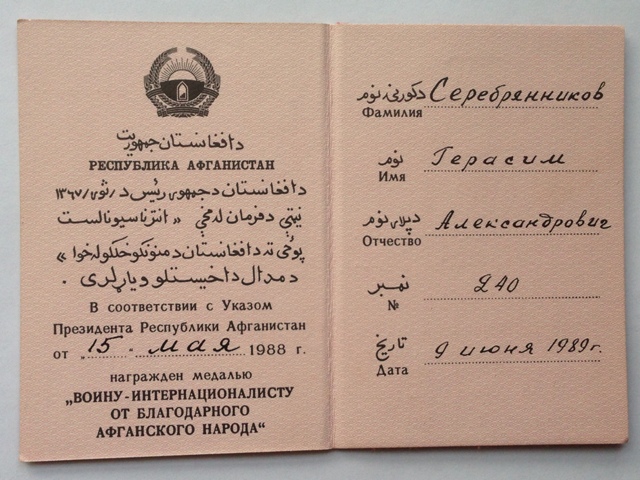 دافغانستان جمهوریت
РЕСПУБЛИКА АФГАНИСТАН
دافغانستان دجمهوری رئیس د ۱۳۶۷
نیټې دفرمان له مخې « انترناسیونالست
پوځی ته دافغانستان دمنونکو خلکو له خوا »
دمدال داخیستلو ویاړ لری .
В соответствии с Указом
Президента Республики Афганистан
от „15“ мая 1988 г.
награжден медалью
„ВОИНУ-ИНТЕРНАЦИОНАЛИСТУ
ОТ БЛАГОДАРНОГО
АФГАНСКОГО НАРОДА“
دکورنۍ نوم Серебрянников
Фамилия
نوم Герасим
Имя
دپلار نوم Александрович
Отчество
نمبر 240
№
تاریخ 9 июня 1989г.
Дата